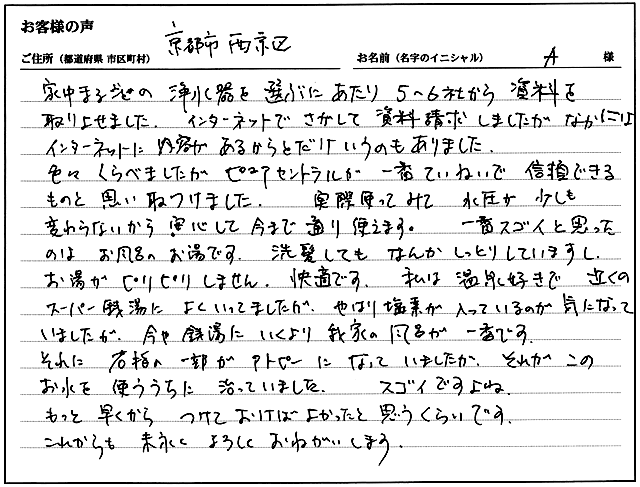 お客様の声
ご住所（都道府県 市区町村） 京都市西京区 お名前（名字のイニシャル） A 様
家中まるごとの 浄水器を 選ぶにあたり 5〜6社から 資料を
取りよせました。インターネットで さがして 資料請求しましたが なかには
インターネットに 内容が あるからとだけ いうのも ありました。
色々 くらべましたが ピュアセントラルが 一番 ていねいで 信頼できる
ものと 思い 取りつけました。 実際使ってみて 水圧が 少しも
変わらないから 安心して 今まで通り 使えます。 一番スゴイと思った
のは お風呂の お湯です。 洗髪しても なんか しっとりしていますし、
お湯が ピリピリしません。快適です。 私は 温泉好きで 近くの
スーパー銭湯に よくいってましたが、やはり 塩素が 入っているのが 気になって
いましたが、今や 銭湯に いくより 我家の 風呂が 一番です。
それに 右指の 一部が アトピーに なって いましたが、それが この
お水を 使ううちに 治っていました。 スゴイですよね。
もっと 早くから つけて おけば よかったと 思うくらいです。
これからも 末永く よろしく おねがいします。